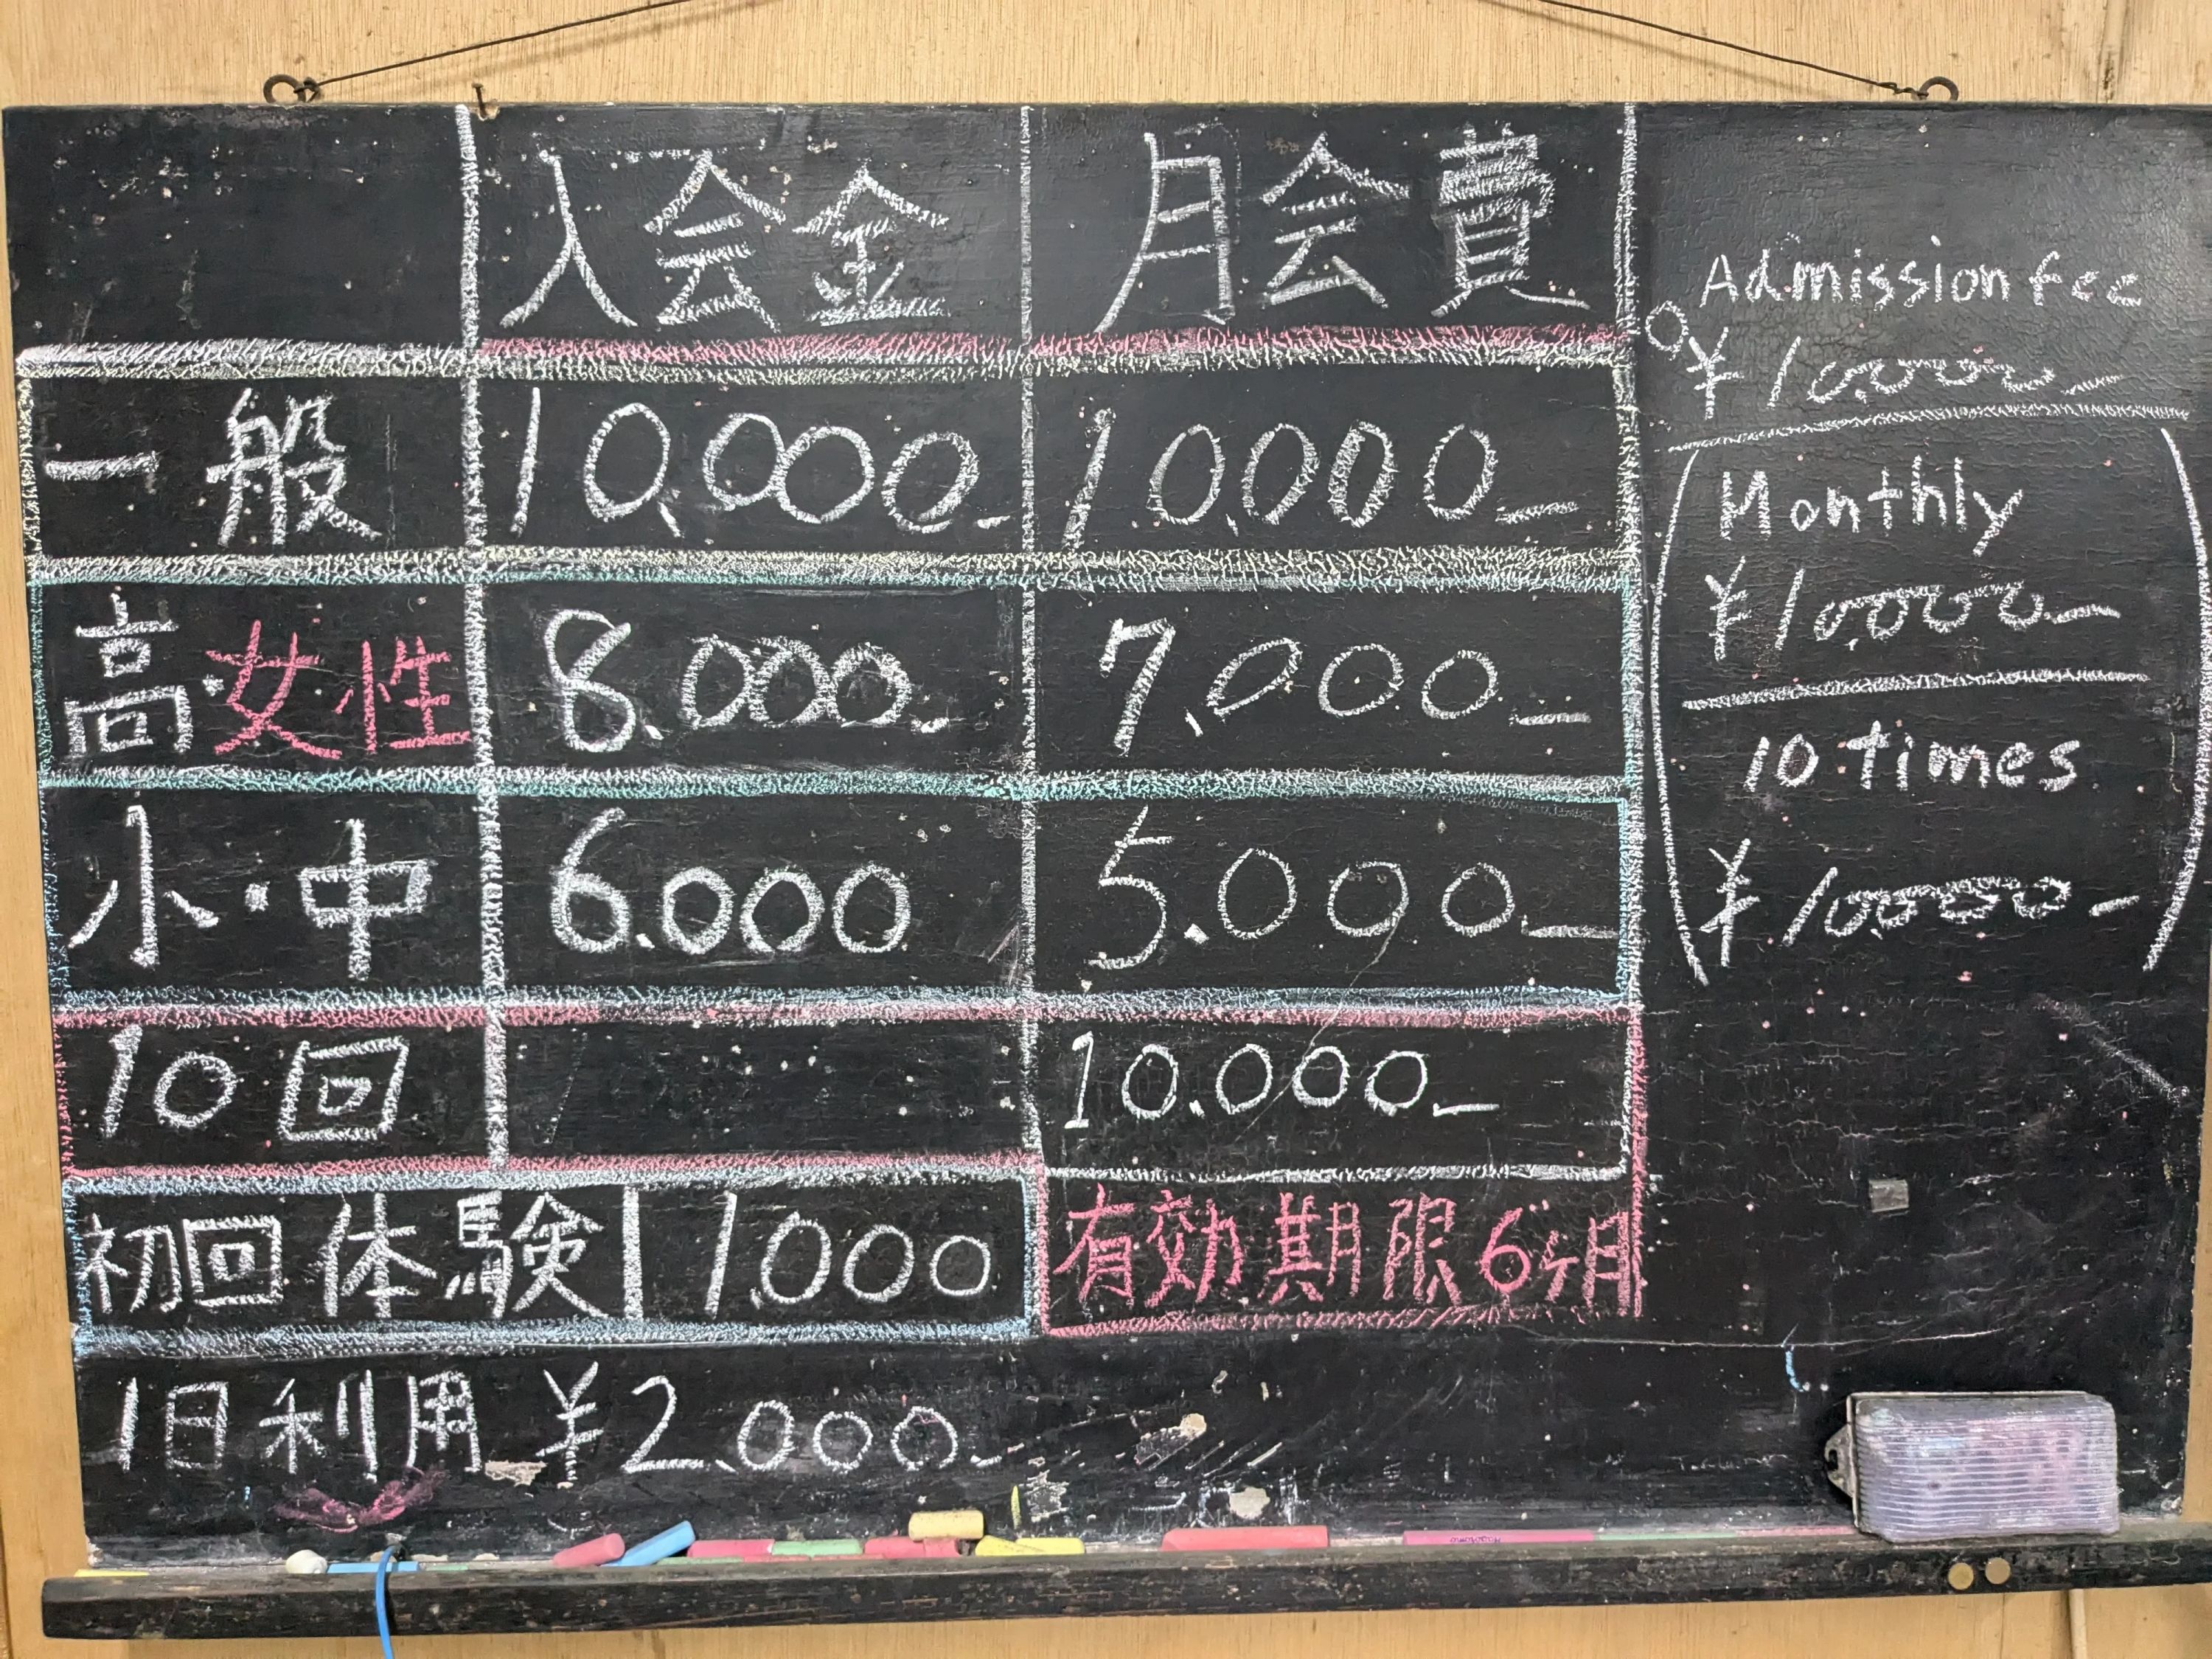 入会金 月会費
一般 10,000- 10,000-
高・女性 8.000- 7,000-
小・中 6.000 5.000-
10回 10.000-
初回体験 1,000 有効期限6ヶ月
1日利用 ¥2.000-
Admission fee
¥10,000-
Monthly
¥10,000-
10 times
¥10,000-